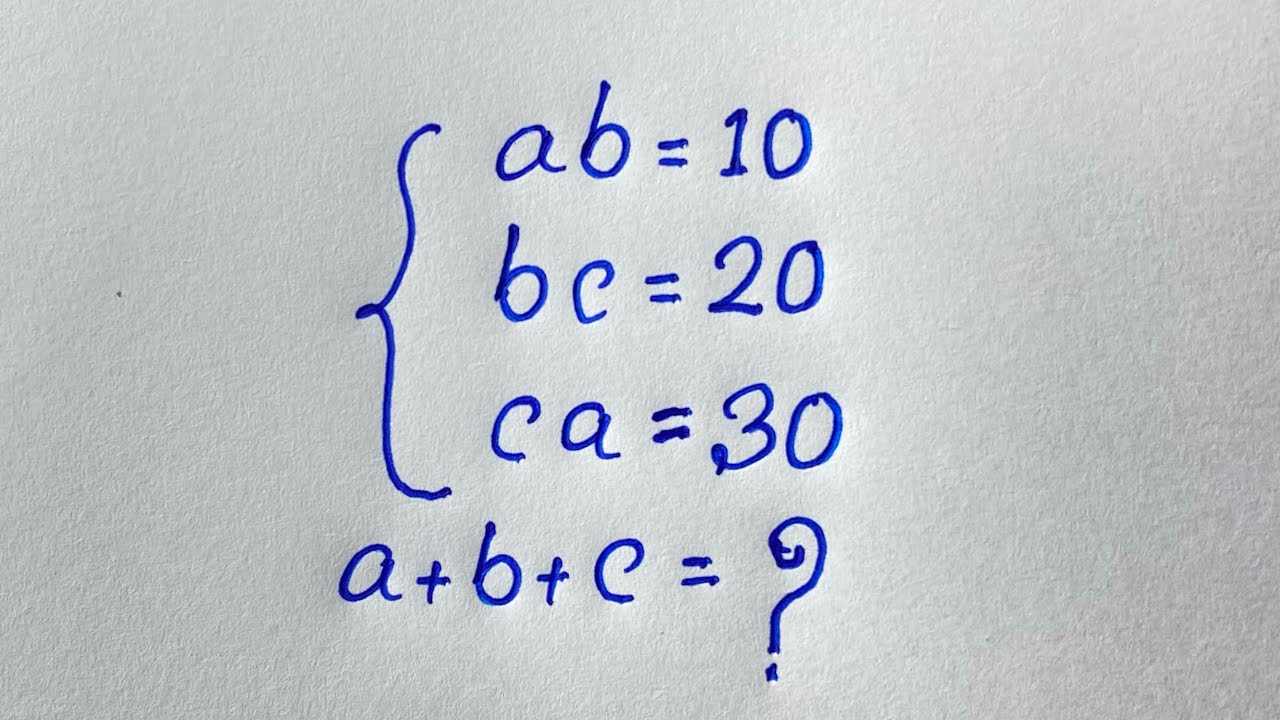 ab = 10
bc = 20
ca = 30
a + b + c = ?